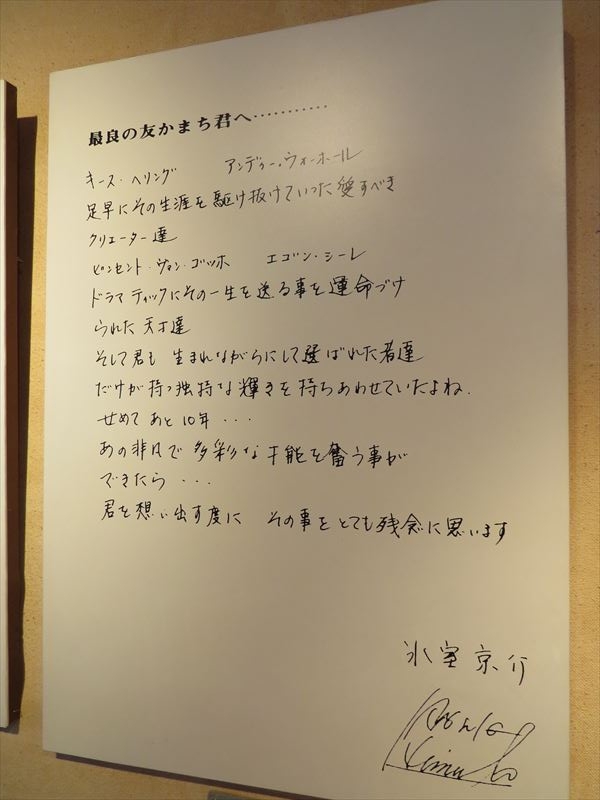 最良の友かまち君へ…………
キース・ヘリング　アンディー・ウォーホール
足早にその生涯を駆け抜けていった愛すべき
クリエーター達
ビンセント・ヴァン・ゴッホ　エゴン・シーレ
ドラマティックにその一生を送る事を運命づけ
られた天才達
そして君も 生まれながらにして選ばれた者達
だけが持つ独特な輝きを持ちあわせていたよね.
せめてあと10年・・・
あの非凡で多彩な才能を奮う事が
できたら・・・
君を想い出す度に　その事をとても残念に思います
氷室京介